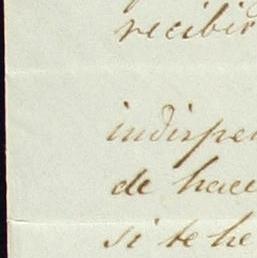 recibir
indispe
de hace
si te he